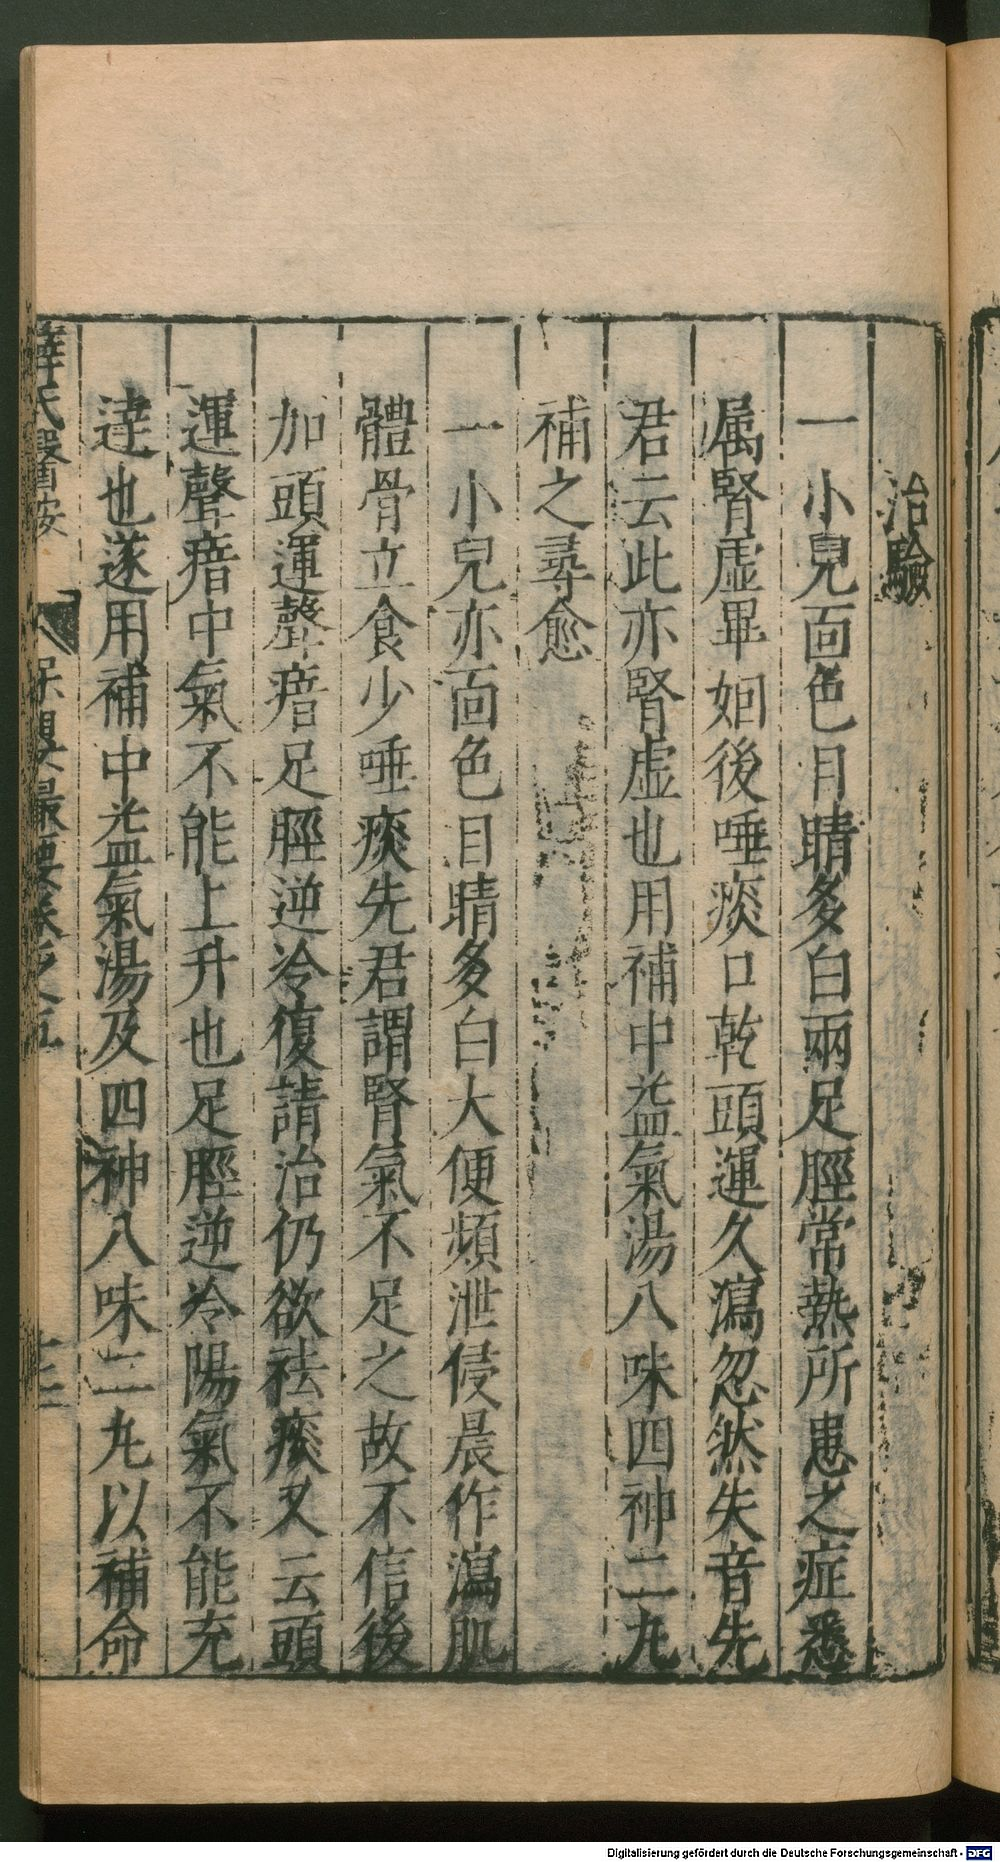 治驗
一小兒面色月睛多白兩足脛常熱所患之症悉
属腎虛畢姻後唾痰口乾頭運久瀉忽然失音先
君云此亦腎虛也用補中益氣湯八味四神二九
補之尋愈
一小兒亦面色目睛多白大便頻泄侵晨作瀉肌
體骨立食少唾痰先君謂腎氣不足之故不信後
加頭運聲瘖足脛逆冷復請治仍欲祛痰又云頭
運聲瘖中氣不能上升也足脛逆冷陽氣不能充
達也遂用補中益氣湯及四神八味二九以補命
薛氏醫按 保嬰撮要卷之五
Digitalisierung gefördert durch die Deutsche Forschungsgemeinschaft - DFG